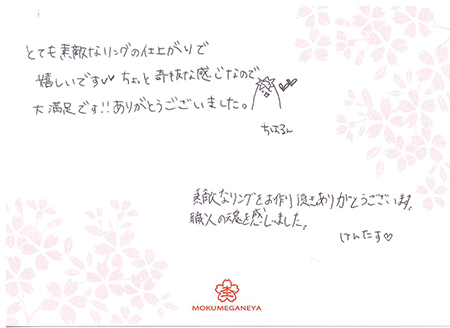 とても素敵なリングの仕上がりで
嬉しいです♥ ちょっと奇抜な感じなので
大満足です!! ありがとうございました。
ちはるん
素敵なリングをお作り頂きありがとうございます。
職人の魂を感じました。
けんたす♡
杢
MOKUMEGANEYA